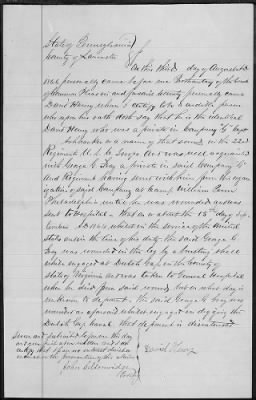 State of Pennsylvania
County of Lancaster
On this third day of August AD
1866 personally came before me Prothonotary of the Court
of Common Pleas in and for said County personally came
David Henry whom I certify to be a credible person
who upon his oath doth say that he is the identical
David Henry who was a private in Company G Capt
a man of that name in the 42nd
Regiment U.S.C. Troops was well acquainted
with George G. Gray a private in said Company G
and Regiment having served with him from the organ
ization of said Company at Camp William Penn
Philadelphia until he was wounded and was
sent to hospital. That on or about the 15th day Sep
tember AD 1864 whilst in the service of the United
States and in the line of his duty the said George G.
Gray was wounded in the leg by a bursting shell
whilst engaged at Dutch Gap in the County
State of Virginia and was taken to General Hospital
where he died from said wound but on what day is
unknown to deponent. The said George G Gray was
wounded as aforesaid whilst engaged in digging the
Dutch Gap Canal. that deponent is disinterested
Sworn and subscribed to before me this day
and year first above written and I do
certify that I have no interest direct or
indirect in the prosecution of this claim
David Henry
John